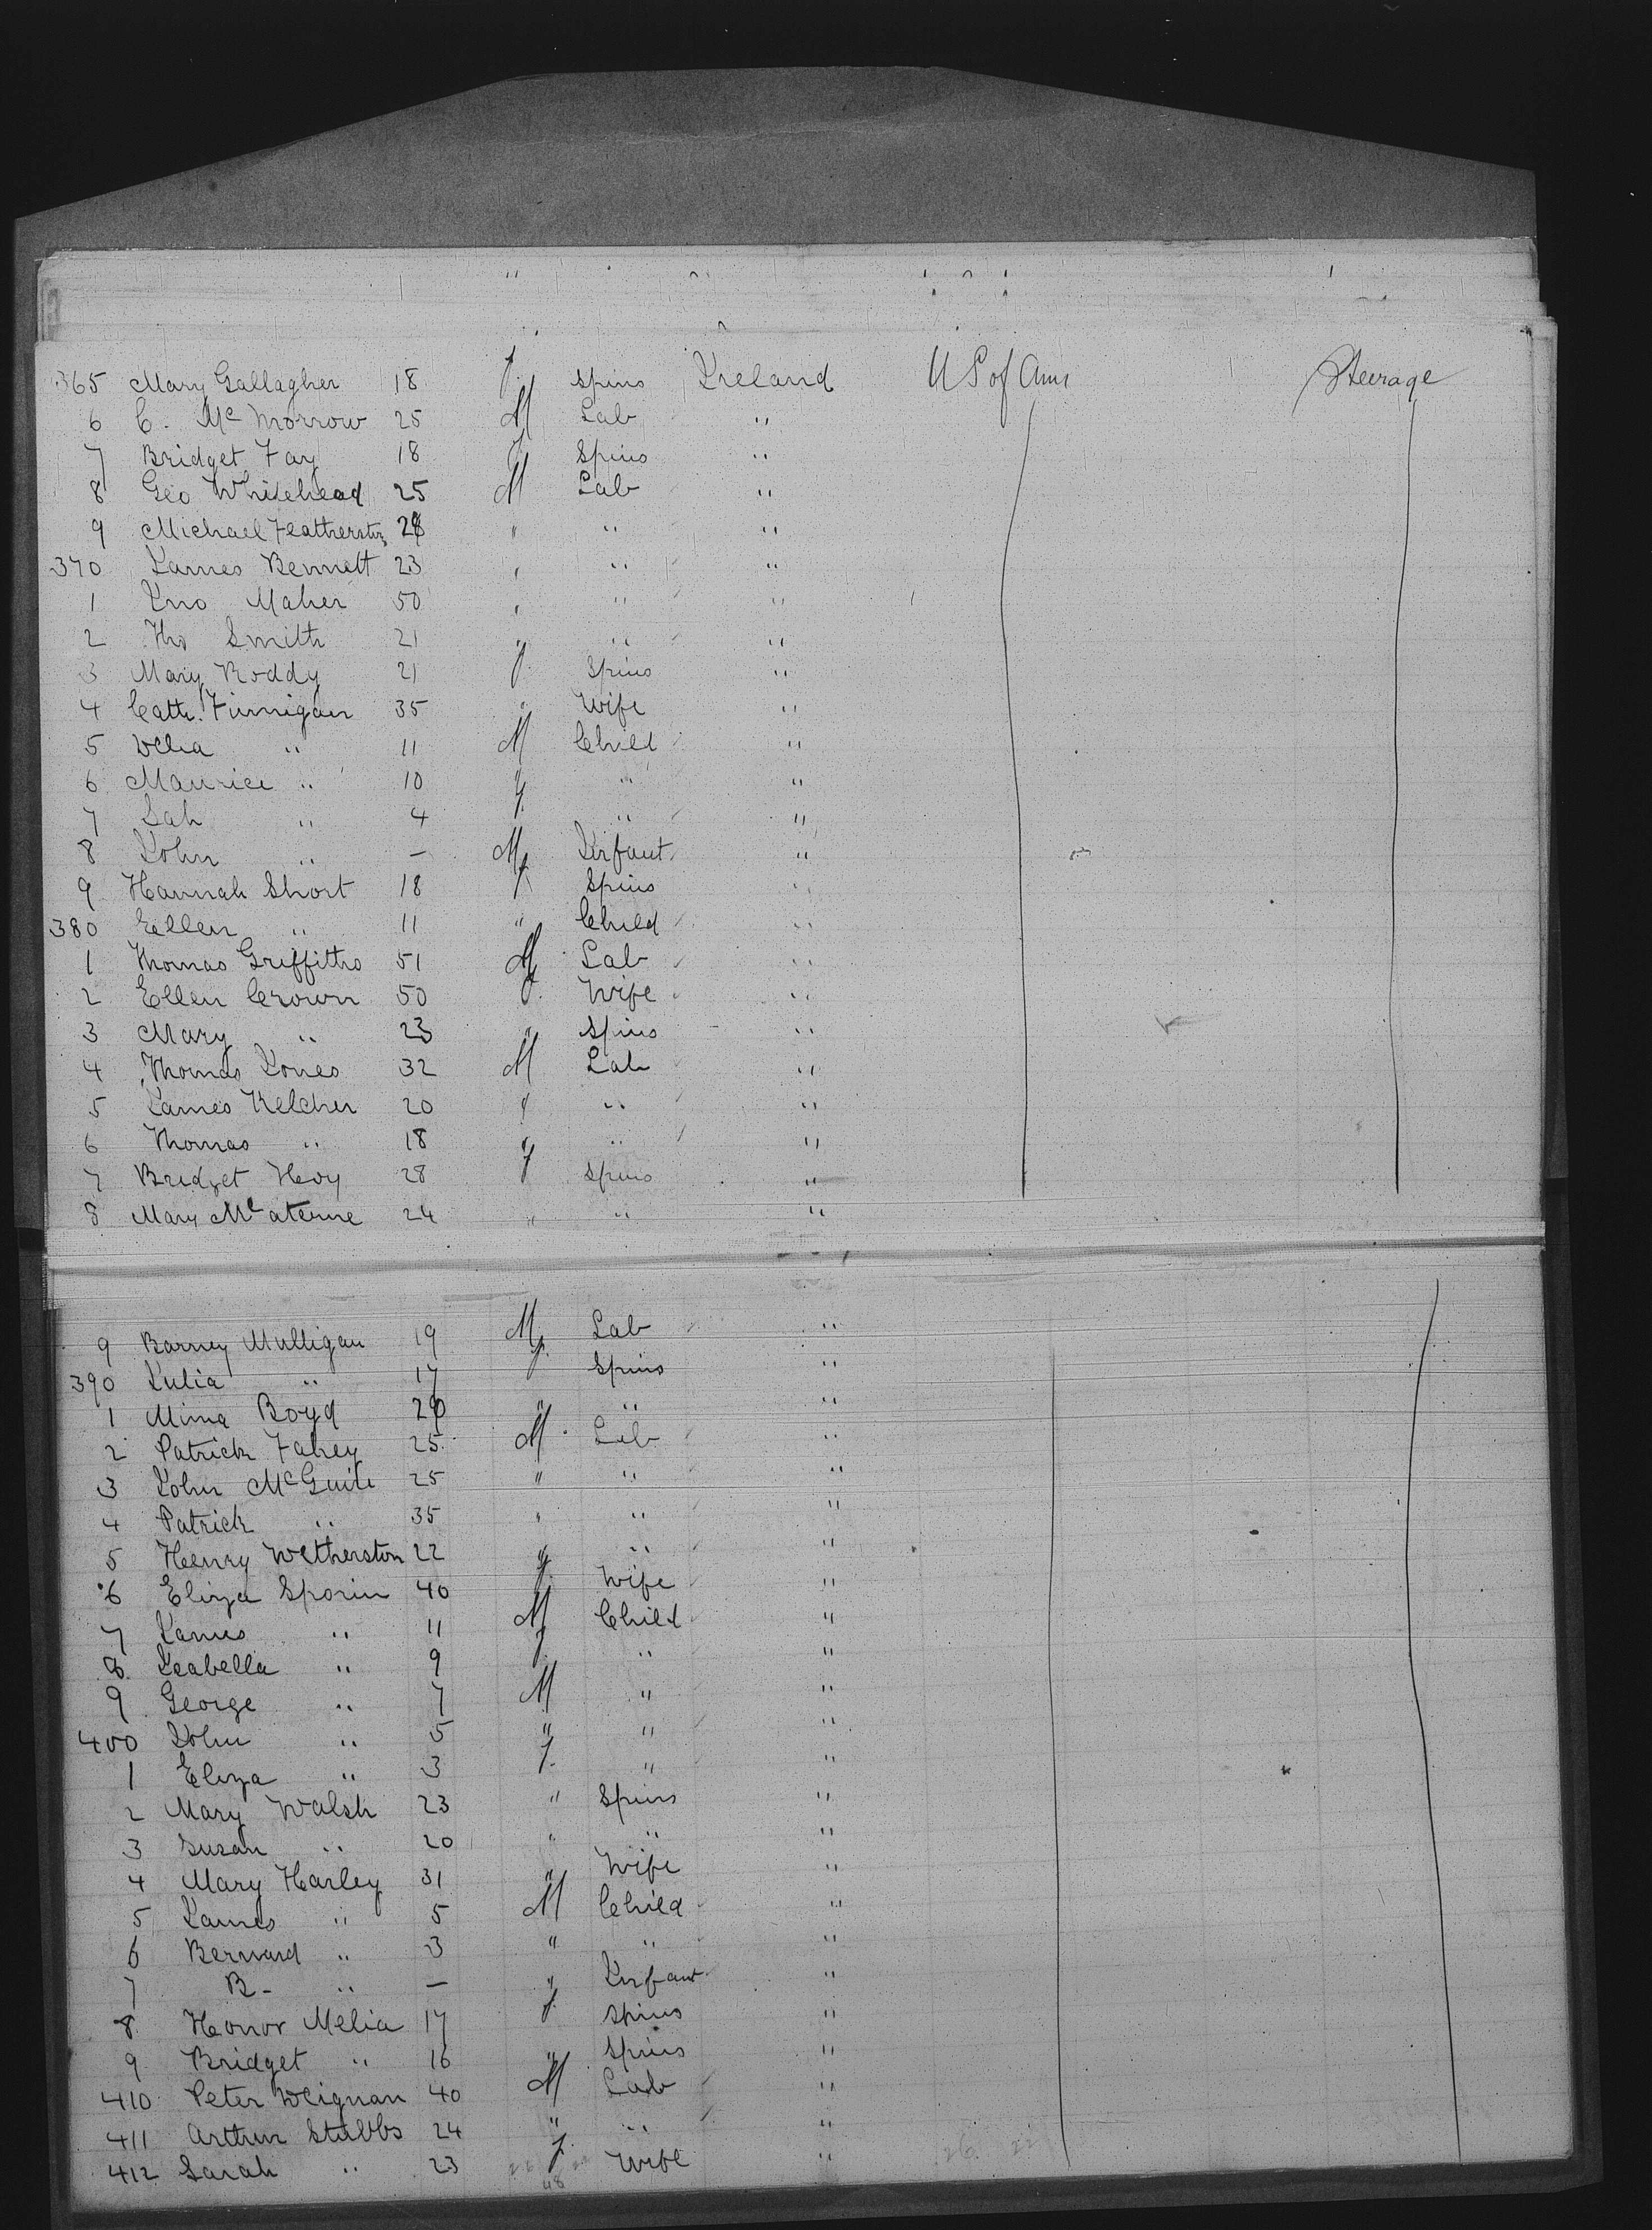 365 Mary Gallagher 18 f. Spins Ireland U S of Ams Steerage
6 C. Mc Morrow 25 M Lab "
7 Bridget Fay 18 f Spins "
8 Geo Whitehead 25 M Lab "
9 Michael Featherston 28 " " "
370 James Bennett 23 " " "
1 Jno Maher 50 " " "
2 Ths Smith 21 " " "
3 Mary Roddy 21 f. Spins "
4 Cath. Finnigan 35 " Wife "
5 Delia " 11 M Child "
6 Maurice " 10 " " "
7 Sah " 4 f. " "
8 John " — M Infant "
9 Hannah Short 18 f Spins "
380 Ellen " 11 " Child "
1 Thomas Griffiths 51 M Lab "
2 Ellen Crown 50 f. Wife "
3 Mary " 23 " Spins "
4 Thomas Jones 32 M Lab "
5 James Kelcher 20 " " "
6 Thomas " 18 " " "
7 Bridget Hevy 28 f Spins "
8 Mary 24 " " "
9 Barney Mulligan 19 M Lab "
390 Julia " 17 f. Spins "
1 Mina Boyd 20 " " "
2 Patrick Fahey 25 M Lab "
3 John McGuire 25 " " "
4 Patrick " 35 " " "
5 Henry Wetherston 22 " " "
6 Eliza Sporin 40 f. Wife "
7 James " 11 M Child "
8 Isabella " 9 f. " "
9 George " 7 M " "
400 John " 5 " " "
1 Eliza " 3 f. " "
2 Mary Walsh 23 " Spins "
3 Susan " 20 " " "
4 Mary Harley 31 " Wife "
5 James " 5 M Child "
6 Bernard " 3 " " "
7 B- " — " Infant "
8 Honor Melia 17 f. Spins "
9 Bridget " 16 " Spins "
410 Peter Deignan 40 M Lab "
411 Arthur Stubbs 24 " " "
412 Sarah " 23 f. Wife "